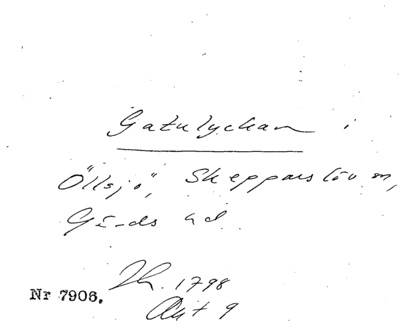 Gatulyckan i
Öllsjö, Skepparslöv sn,
Gärds hd.
Nr 7906.
1798
Akt 9